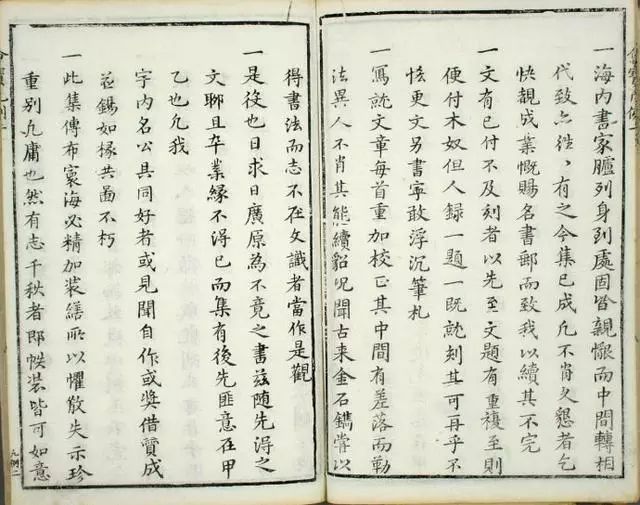 一海內書家臚列身到處固皆親懷而中間轉相
代致亦往往有之今集已成凡不肖久懇者乞
快覩成業慨賜名書郵而致我以續其不完
一文有已付不及刻者以先至文題有重複至則
便付木奴但人錄一題一既就刻其可再乎不
恡更文另書寧敢浮沉筆札
一寫就文章每首重加校正其中間有差落而勒
法異人不肖其能續貂况聞古来金石鐫嘗以
得書法而志不在文識者當作是觀
一是役也日求日廣原為不竟之書茲随先得之
文聊且卒業緣不得已而集有後先匪意在甲
乙也凡我
宇內名公具同好者或見聞自作或奬借賈成
並錫如椽共啚不朽
一此集傳布寰海必精加裝繕所以懼散失示珍
重別凡庸也然有志千秋者即帙裝皆可如意
凡例二